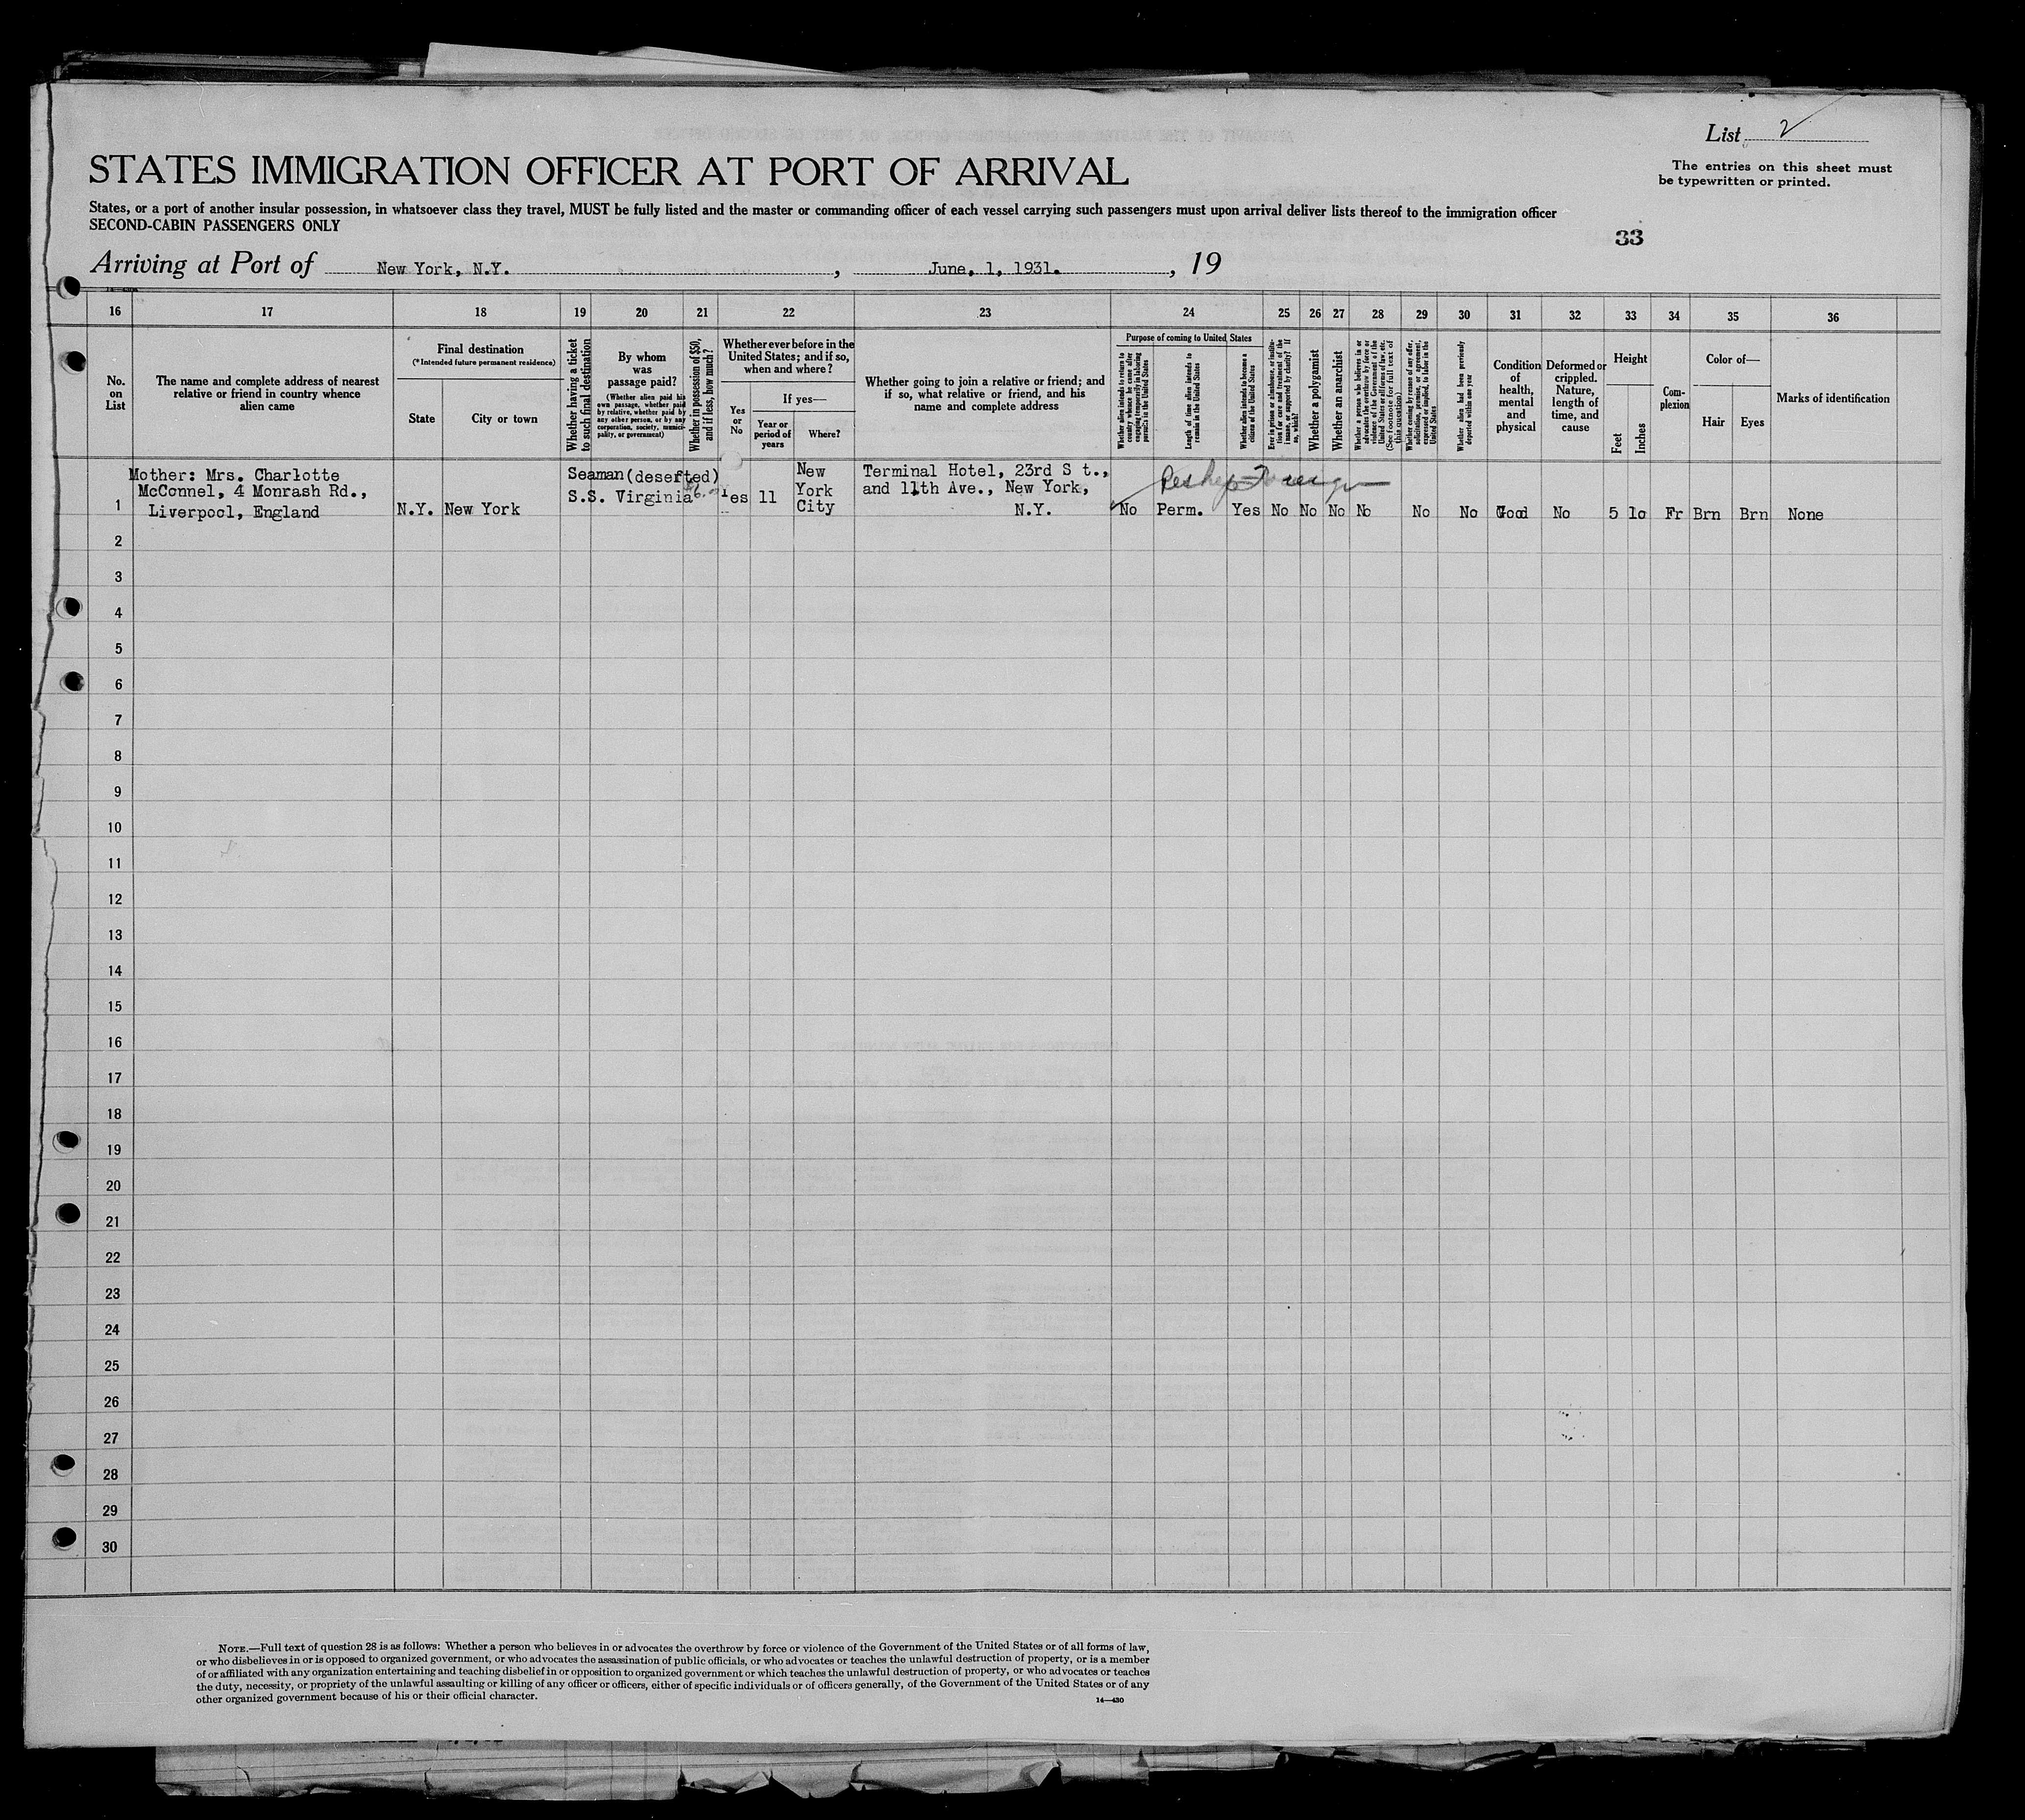 List 2
STATES IMMIGRATION OFFICER AT PORT OF ARRIVAL
The entries on this sheet must
be typewritten or printed.
States, or a port of another insular possession, in whatsoever class they travel, MUST be fully listed and the master or commanding officer of each vessel carrying such passengers must upon arrival deliver lists thereof to the immigration officer
SECOND-CABIN PASSENGERS ONLY
33
Arriving at Port of New York, N.Y. , June, 1, 1931. , 19
16 17 18 19 20 21 22 23 24 25 26 27 28 29 30 31 32 33 34 35 36
No.
on
List
The name and complete address of nearest
relative or friend in country whence
alien came
Final destination
(*Intended future permanent residence)
State
City or town
Whether having a ticket
to such final destination
By whom
was
passage paid?
(Whether alien paid his
own passage, whether paid
by relative, whether paid by
any other person, or by any
corporation, society, munici-
pality, or government)
Whether in possession of $50,
and if less, how much?
Whether ever before in the
United States; and if so,
when and where?
Yes
or
No
If yes—
Year or
period of
years
Where?
Whether going to join a relative or friend; and
if so, what relative or friend, and his
name and complete address
Purpose of coming to United States
Whether alien intends to return to
country whence he came after
engaging temporarily in laboring
pursuits in the United States
Length of time alien intends to
remain in the United States
Whether alien intends to become a
citizen of the United States
Ever in prison or almshouse, institu-
tion for care and treatment of the
insane, or supported by charity? If
so, which?
Whether a polygamist
Whether an anarchist
Whether a person who believes in or
advocates the overthrow by force or
violence of the Government of the
United States or all forms of law, etc.
(See footnote for full text of
this question)
Whether coming by reason of any offer,
solicitation, promise, or agreement,
expressed or implied, to labor in the
United States
Whether alien had been previously
deported within one year
Condition
of
health,
mental
and
physical
Deformed or
crippled.
Nature,
length of
time, and
cause
Height
Feet
Inches
Com-
plexion
Color of—
Hair
Eyes
Marks of identification
1
Mother: Mrs. Charlotte
McConnel, 4 Monrash Rd.,
Liverpool, England
N.Y. New York
Seaman (deserted)
S.S. Virginia
Yes 11
New
York
City
Terminal Hotel, 23rd S t.,
and 11th Ave., New York,
N.Y.
Foreign
No Perm. Yes No No No No No No Good No 5 10 Fr Brn Brn None
2
3
4
5
6
7
8
9
10
11
12
13
14
15
16
17
18
19
20
21
22
23
24
25
26
27
28
29
30
NOTE.—Full text of question 28 is as follows: Whether a person who believes in or advocates the overthrow by force or violence of the Government of the United States or of all forms of law,
or who disbelieves in or is opposed to organized government, or who advocates the assassination of public officials, or who advocates or teaches the unlawful destruction of property, or is a member
of or affiliated with any organization entertaining and teaching disbelief in or opposition to organized government or which teaches the unlawful destruction of property, or who advocates or teaches
the duty, necessity, or propriety of the unlawful assaulting or killing of any officer or officers, either of specific individuals or of officers generally, of the Government of the United States or of any
other organized government because of his or their official character.
14—430